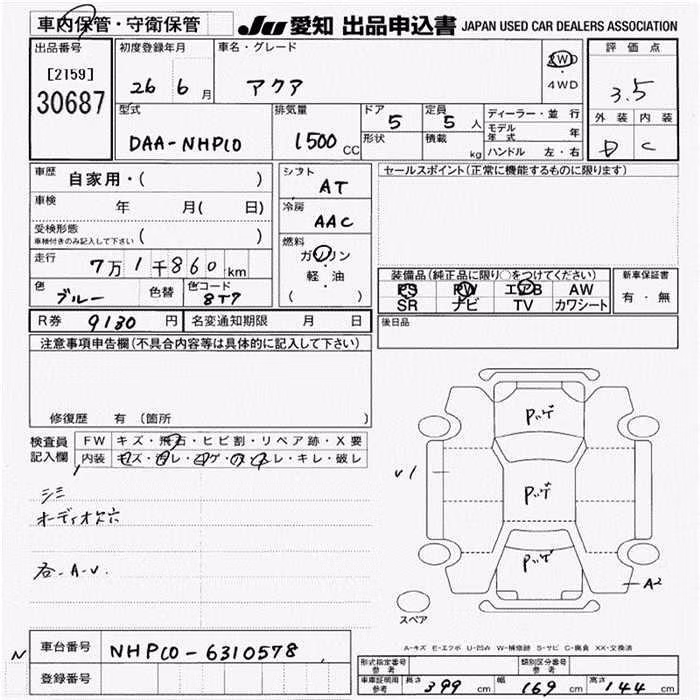 車内保管・守衛保管
JU 愛知 出品申込書 JAPAN USED CAR DEALERS ASSOCIATION
出品番号
[2159]
30687
初度登録年月
26 6月
車名・グレード
アクア
2WD
・
4WD
評価点
3.5
外装 内装
D C
型式
DAA-NHP10
排気量
1500 CC
ドア
5
形状
定員
5 人
積載
kg
ディーラー・並 行
モデル年式 年
ハンドル 左・右
車歴
自家用・( )
車検
年 月( 日)
受検形態
車検付きのみ記入して下さい ( )
走行
7万1千860km
色
ブルー
色替
色コード
8T7
シフト
AT
冷房
AAC
燃料
ガソリン
・
軽・油
( )
セールスポイント(正常に機能するものに限ります)
装備品(純正品に限り○をつけてください)
PS PW エアB AW
SR ナビ TV カワシート
新車保証書
有・無
R券 9130 円
名変通知期限 月 日
後日品
注意事項申告欄(不具合内容等は具体的に記入して下さい)
修復歴 有(箇所
検査員
記入欄
FW キズ・飛石・ヒビ割・リペア跡・X要
内装 キズ・ ・コゲ・ ・キレ・破レ
シミ
オーディオ欠穴
各-A-U.
V1
A2
スペア
A-キズ E-エクボ U-凹み W-補修跡 S-サビ C-腐食 XX-交換済
N
車台番号 NHP10-6310578
登録番号
形式指定番号
参考
類別区分番号
参考
車庫証明用
参考
長さ 399 cm 幅 169 cm 高さ 144 cm